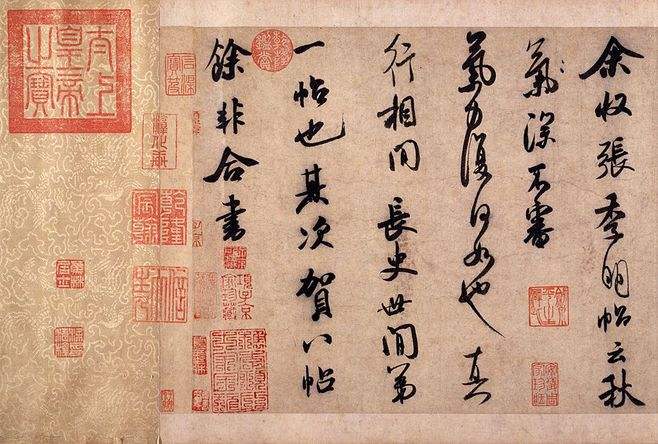 余收張季明帖云秋
氣深不審
氣力復何如也真
行相間長史世間第
一帖也其次賀八帖
餘非合書
淳化軒
乾隆宸翰
信天主人
太上皇帝之寶